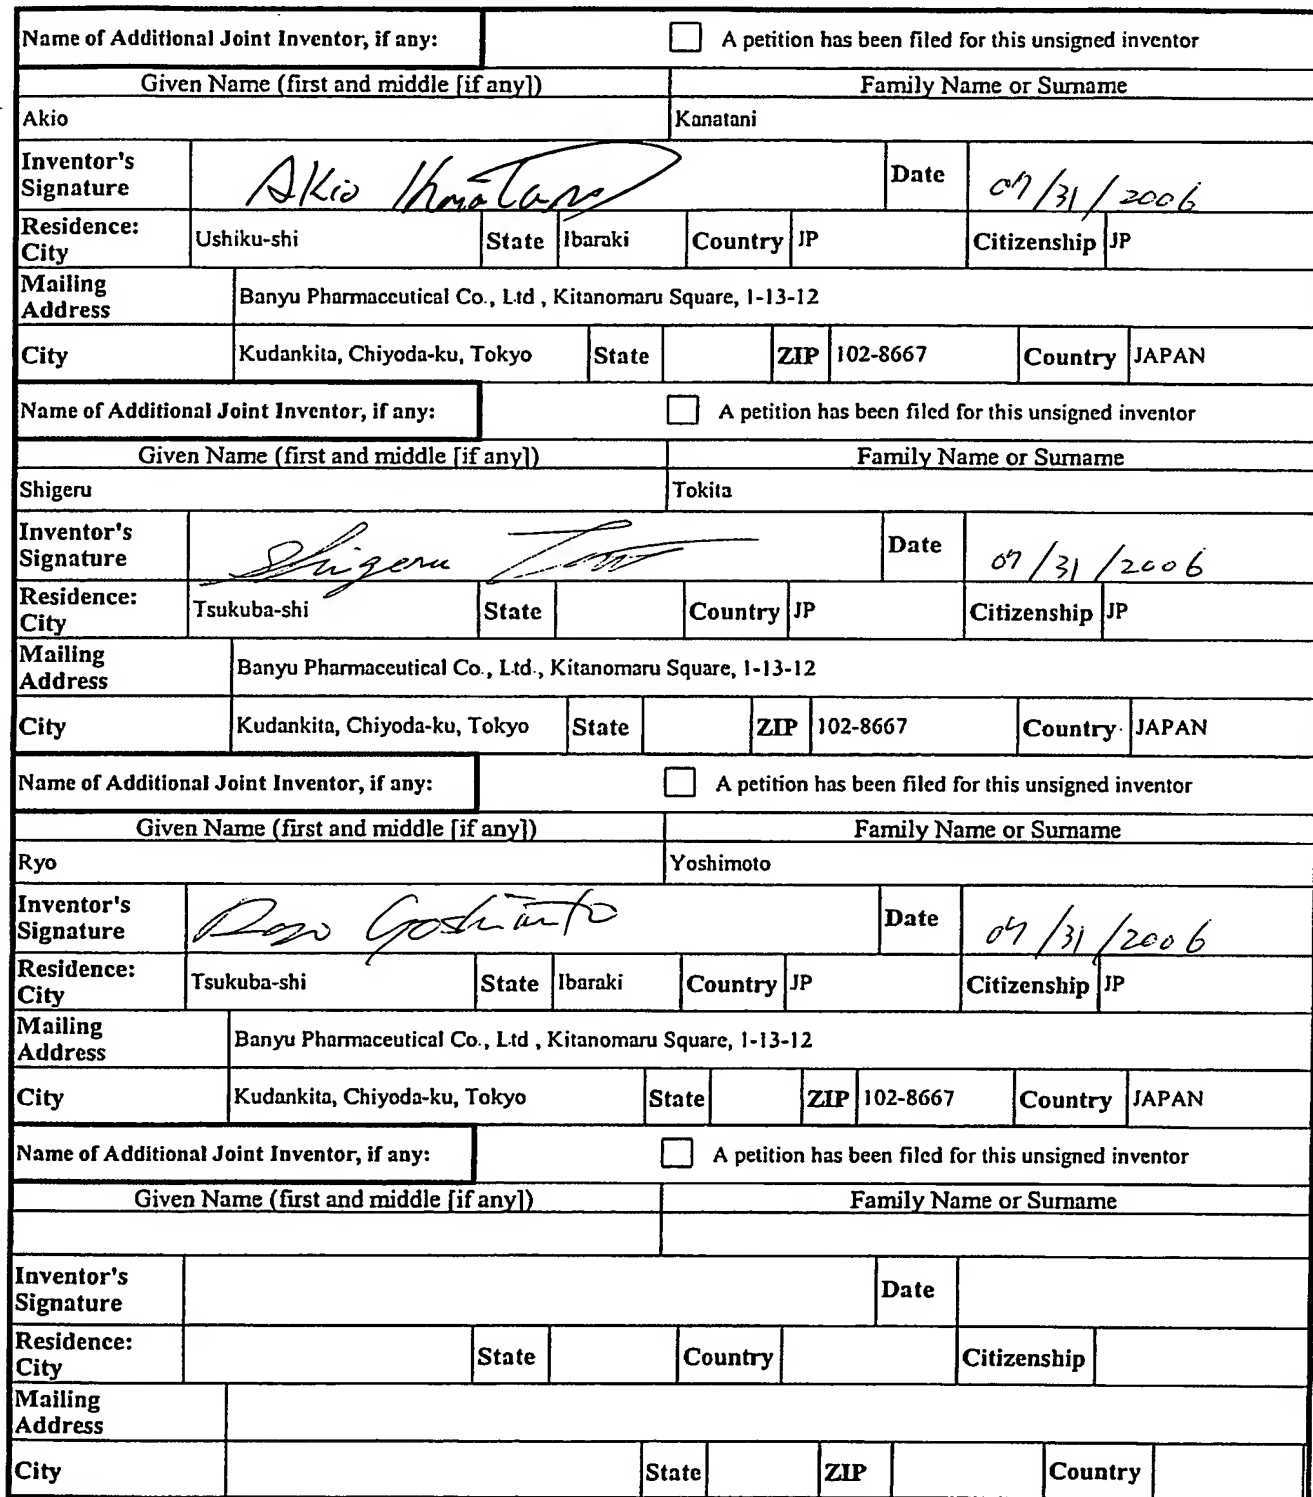 Name of Additional Joint Inventor, if any: A petition has been filed for this unsigned inventor
Given Name (first and middle [if any]) Family Name or Surname
Akio Kanatani
Inventor's Signature Akio Kanatani Date 07/31/2006
Residence: City Ushiku-shi State Ibaraki Country JP Citizenship JP
Mailing Address Banyu Pharmaceutical Co., Ltd , Kitanomaru Square, 1-13-12
City Kudankita, Chiyoda-ku, Tokyo State ZIP 102-8667 Country JAPAN
Name of Additional Joint Inventor, if any: A petition has been filed for this unsigned inventor
Given Name (first and middle [if any]) Family Name or Surname
Shigeru Tokita
Inventor's Signature Shigeru Date 07/31/2006
Residence: City Tsukuba-shi State Country JP Citizenship JP
Mailing Address Banyu Pharmaceutical Co., Ltd., Kitanomaru Square, 1-13-12
City Kudankita, Chiyoda-ku, Tokyo State ZIP 102-8667 Country JAPAN
Name of Additional Joint Inventor, if any: A petition has been filed for this unsigned inventor
Given Name (first and middle [if any]) Family Name or Surname
Ryo Yoshimoto
Inventor's Signature Ryo Yoshimoto Date 07/31/2006
Residence: City Tsukuba-shi State Ibaraki Country JP Citizenship JP
Mailing Address Banyu Pharmaceutical Co., Ltd , Kitanomaru Square, 1-13-12
City Kudankita, Chiyoda-ku, Tokyo State ZIP 102-8667 Country JAPAN
Name of Additional Joint Inventor, if any: A petition has been filed for this unsigned inventor
Given Name (first and middle [if any]) Family Name or Surname
Inventor's Signature Date
Residence: City State Country Citizenship
Mailing Address
City State ZIP Country